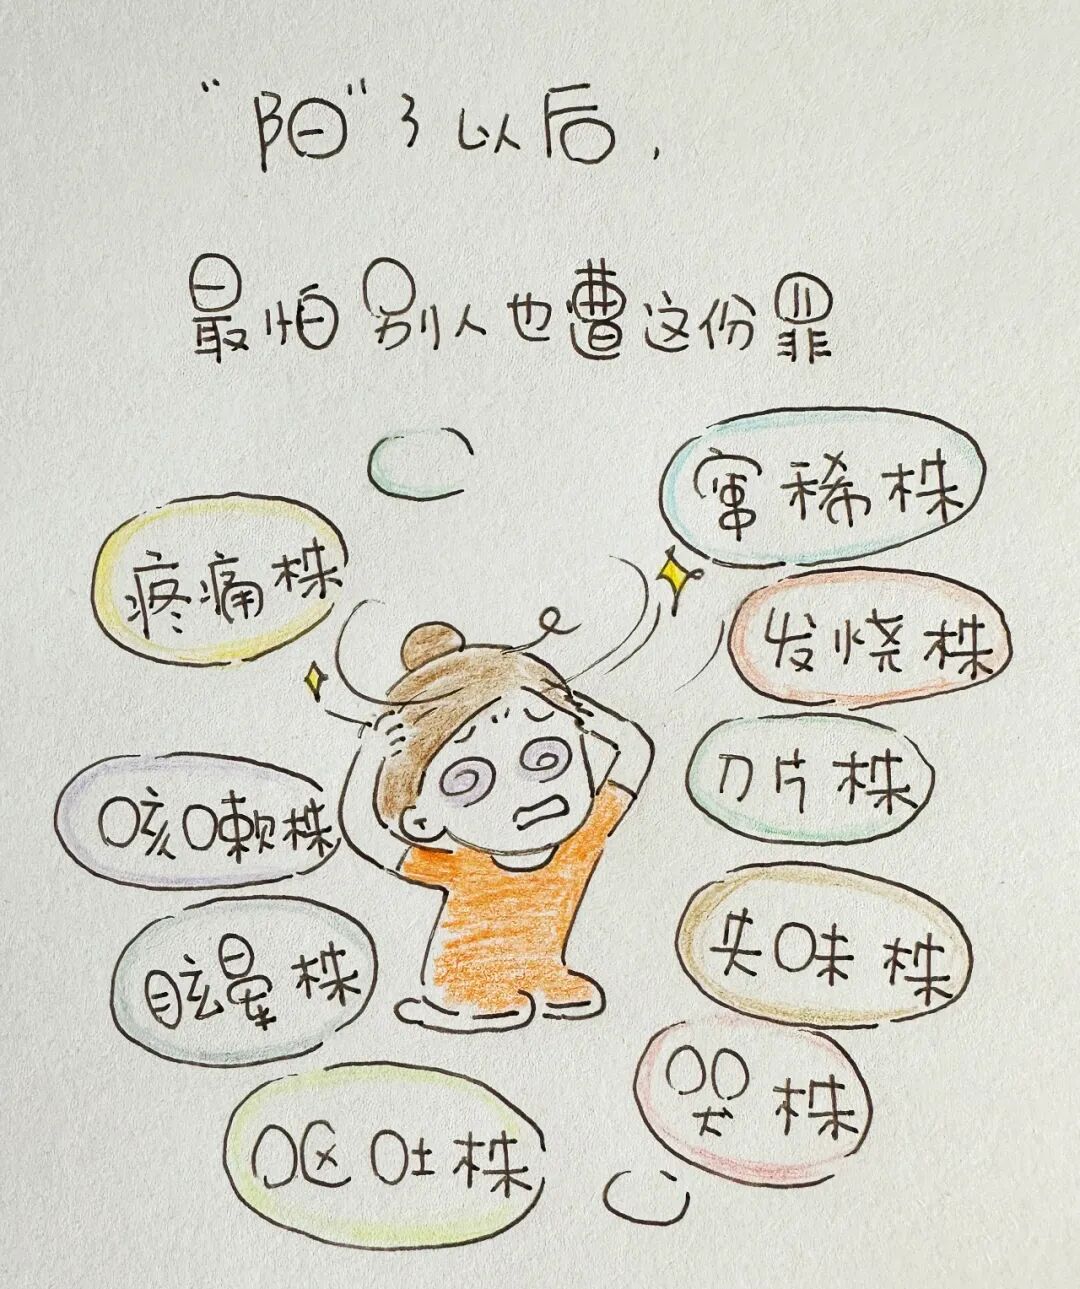 “阳”了以后,
最怕别人也遭这份罪
窜稀株
疼痛株
发烧株
刀片株
咳嗽株
失味株
眩晕株
哭株
呕吐株